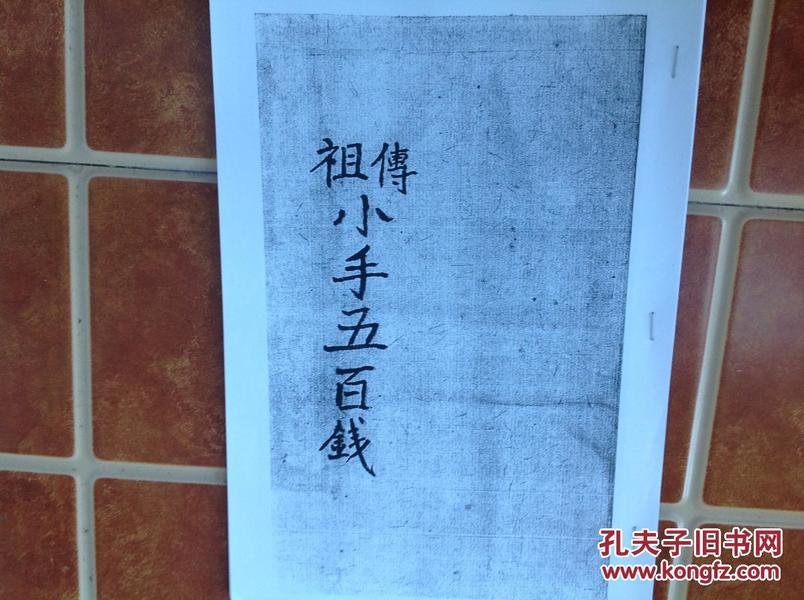 祖傳
小手五百銭
孔夫子旧书网
www.kongfz.com